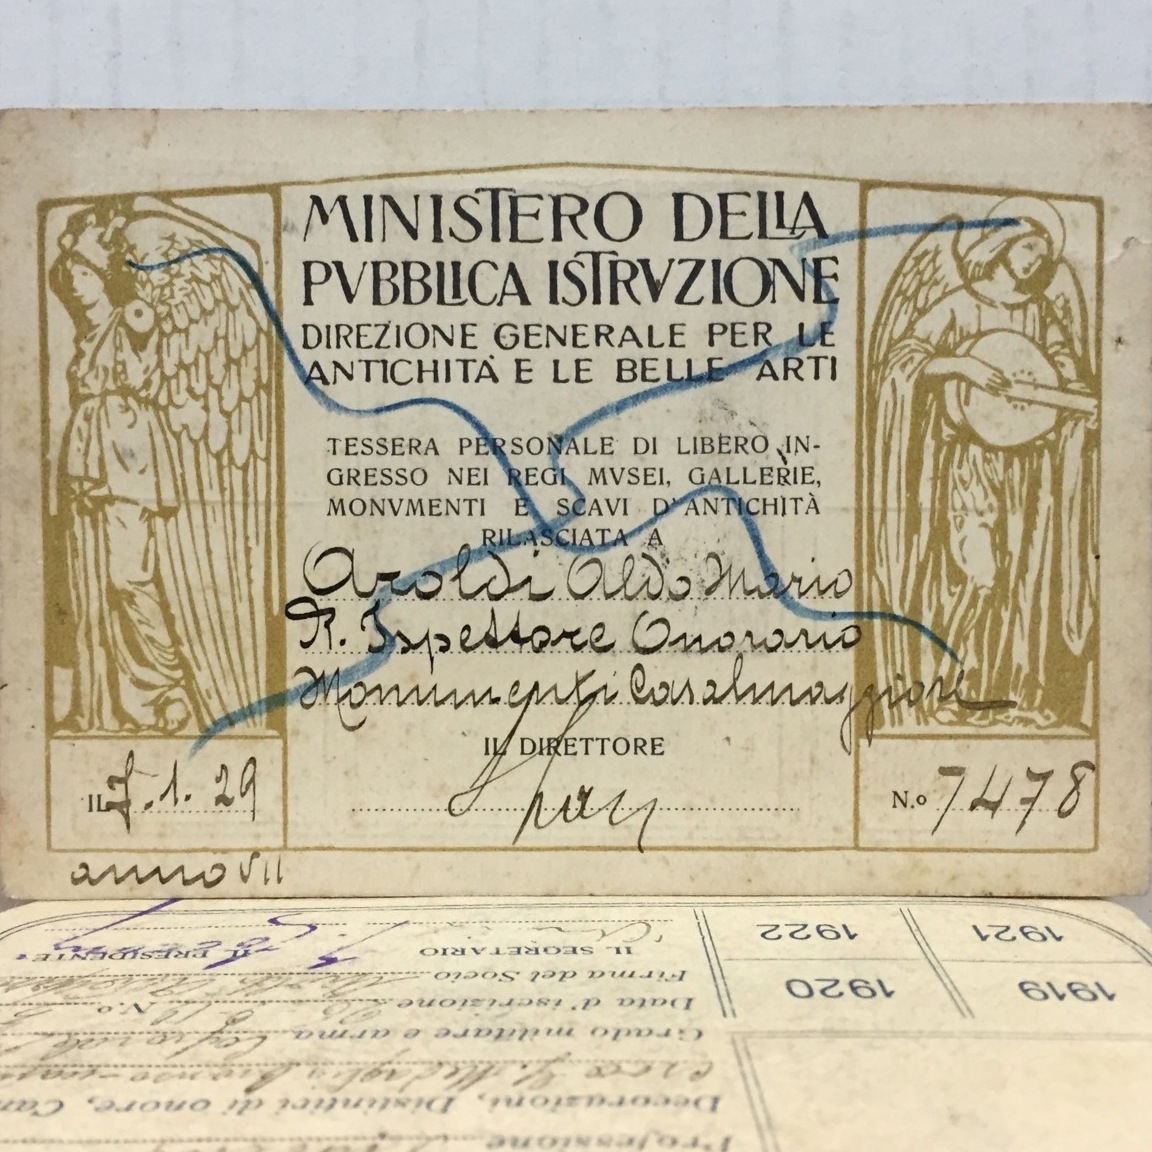 MINISTERO DELLA
PVBBLICA ISTRVZIONE
DIREZIONE GENERALE PER LE
ANTICHITÀ E LE BELLE ARTI
TESSERA PERSONALE DI LIBERO IN-
GRESSO NEI REGI MVSEI, GALLERIE,
MONVMENTI E SCAVI D'ANTICHITÀ
RILASCIATA A
Aroldi Aldo Mario
R. Ispettore Onorario
Monumenti Casalmaggiore
IL DIRETTORE
IL 7.1.29
N.o 7478
anno VII
1922 1921
IL PRESIDENTE IL SEGRETARIO
1920 1919
Firma del Socio
Data d'iscrizione N.o
Grado militare e arma
Decorazioni, Distintivi di onore,
Professione